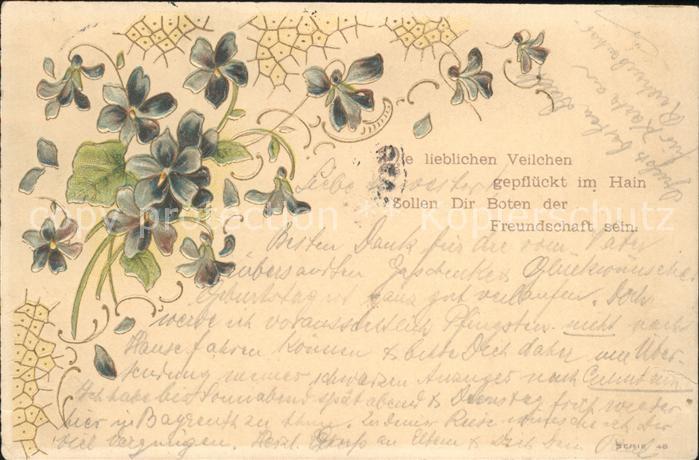 Die lieblichen Veilchen
gepflückt im Hain
Sollen Dir Boten der
Freundschaft sein.
Liebe Schwester!
Besten Dank für die vom Vater
übersandten Geschenke & Glückwünsche.
Geburtstag ist ganz gut verlaufen. Doch
werde ich voraussichtlich Pfingsten nicht nach
Hause fahren können & bitte Dich daher um Über-
sendung meines schwarzen Anzuges nach
Ich habe bis Sonnabend spät abend & Dienstag früh wieder
hier in Bayreuth zu thun. Zu Deiner Reise wünsche ich Dir
viel Vergnügen. Herzl. Gruß an Eltern & Dich
SERIE 40
copyright protection Kopierschutz